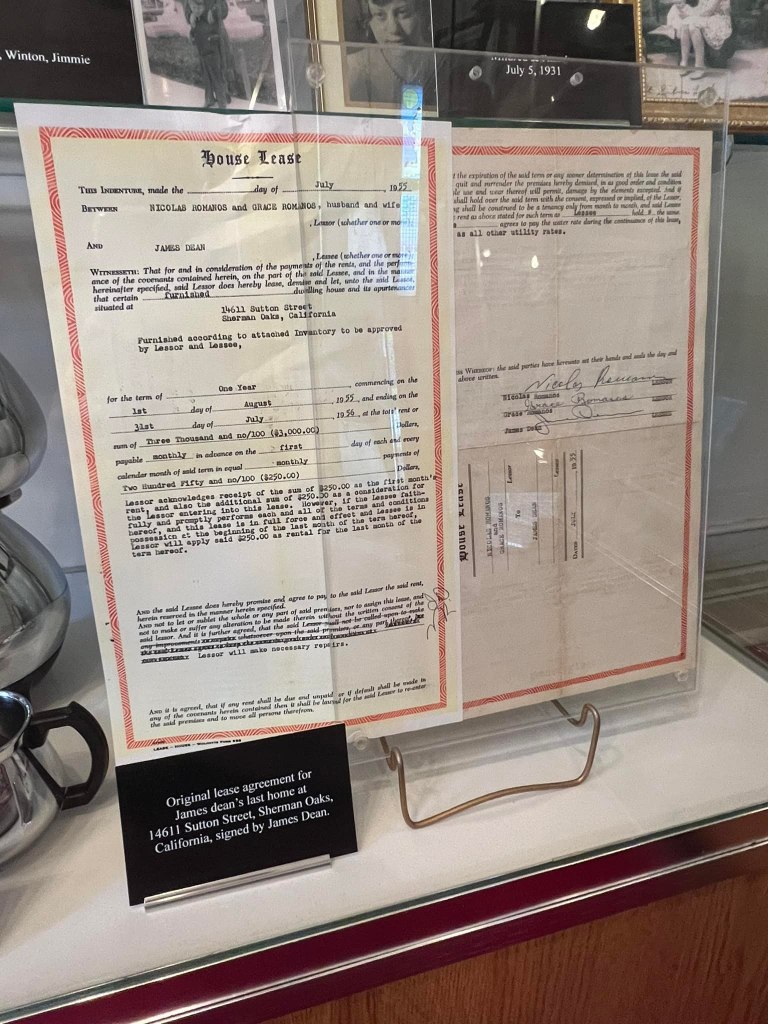 , Winton, Jimmie
July 5, 1931
House Lease
THIS INDENTURE, made the day of July , 1955
BETWEEN NICOLAS ROMANOS and GRACE ROMANOS, husband and wife
, Lessor (whether one or more)
AND JAMES DEAN
, Lessee (whether one or more),
WITNESSETH: That for and in consideration of the payments of the rents, and the perform-
ance of the covenants contained herein, on the part of the said Lessee, and in the manner
hereinafter specified, said Lessor does hereby lease, demise and let, unto the said Lessee,
that certain furnished dwelling house and its apurtenances
situated at 14611 Sutton Street
Sherman Oaks, California
Furnished according to attached Inventory to be approved
by Lessor and Lessee,
for the term of One Year , commencing on the
1st day of August , 1955, and ending on the
31st day of July , 1956, at the total rent or
sum of Three Thousand and no/100 ($3,000.00) Dollars,
payable monthly in advance on the first day of each and every
calender month of said term in equal monthly payments of
Two Hundred Fifty and no/100 ($250.00) Dollars,
Lessor acknowledges receipt of the sum of $250.00 as the first month's
rent, and also the additional sum of $250.00 as a consideration for
the Lessor entering into this lease. However, if the Lessee faith-
fully and promptly performs each and all of the terms and conditions
hereof, and this lease is in full force and effect and Lessee is in
possession at the beginning of the last month of the term hereof,
Lessor will apply said $250.00 as rental for the last month of the
term hereof.
And the said Lessee does hereby promise and agree to pay to the said Lessor the said rent,
herein reserved in the manner herein specified.
And not to let or sublet the whole or any part of said premises, nor to assign this lease, and
not to make or suffer any alteration to be made therein without the written consent of the
said lessor. And it is further agreed, that the said Lessor shall not be called upon to make
any improvements or repairs whatsoever upon the said premises, or any part
Lessor will make necessary repairs.
And it is agreed, that if any rent shall be due and unpaid, or if default shall be made in
any of the covenants herein contained then it shall be lawful for the said Lessor to re-enter
the said premises and to move all persons therefrom.
LEASE—HOUSE—
t the expiration of the said term or any sooner determination of this lease the said
quit and surrender the premises hereby demised, in as good order and condition
le use and wear thereof will permit, damage by the elements excepted. And if
shall hold over the said term with the consent, expressed or implied, of the Lessor,
ng shall be construed to be a tenancy only from month to month, and said Lessee
e rent as above stated for such term as Lessee hold s the same.
agrees to pay the water rate during the continuance of this lease,
as all other utility rates.
SS WHEREOF: the said parties have hereunto set their hands and seals the day and
above written.
Nicolas Romanos
Grace Romanos
James Dean
House Lease
NICOLAS ROMANOS
and
GRACE ROMANOS
Lessor
To
JAMES DEAN
Lessee
DATED JULY 1955
Original lease agreement for
James dean's last home at
14611 Sutton Street, Sherman Oaks,
California, signed by James Dean.